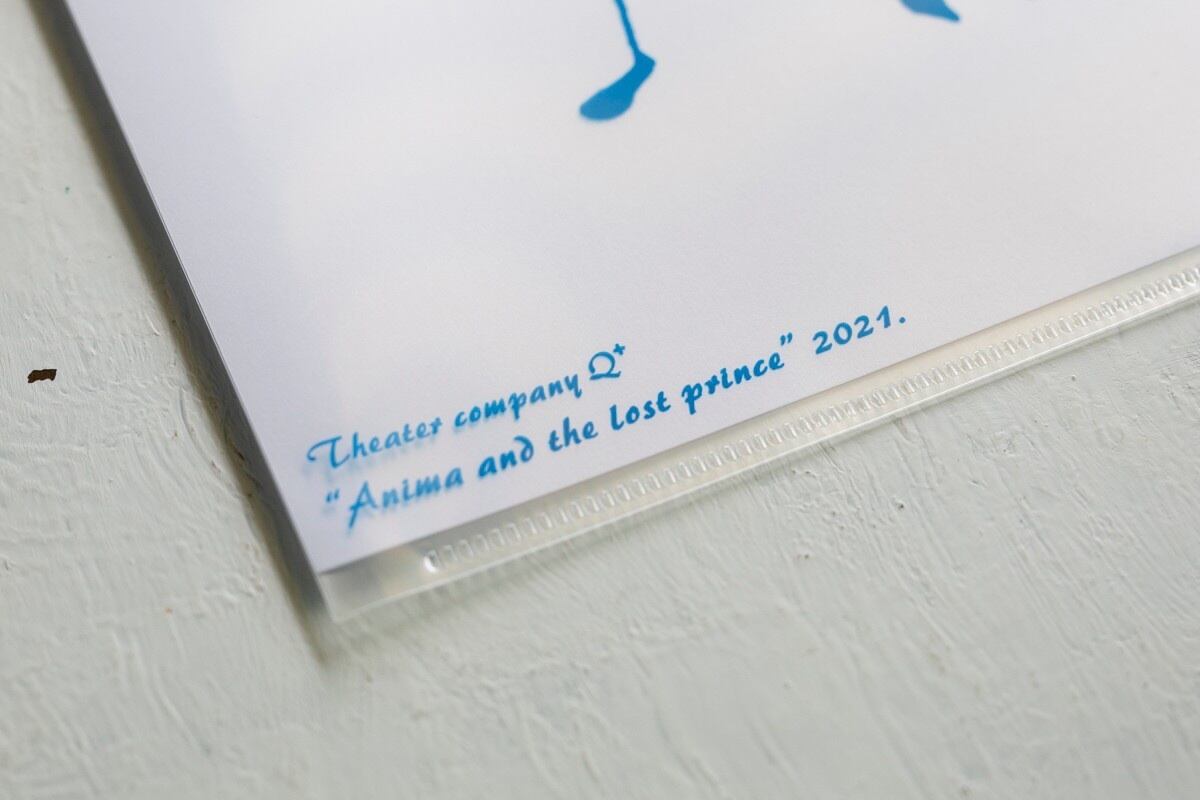 Theater company Q⁺
“Anima and the lost prince” 2021.